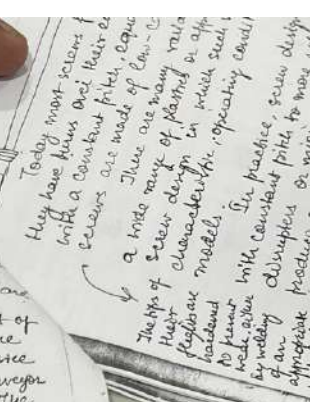 Today most screws
they have turns over their
with a constant pitch, equa
screws are made of low-c
There are many varia
a wide range of plastics or app
screw design in which such
characteristic, operating condi
models.
In practice, screw desig
with constant pitch to more
disrupters or mi
produce
The tips of
their
flights are
hardened
to prevent
wear, either
by welding
of an
appropriate
are
t of
ce
veyor